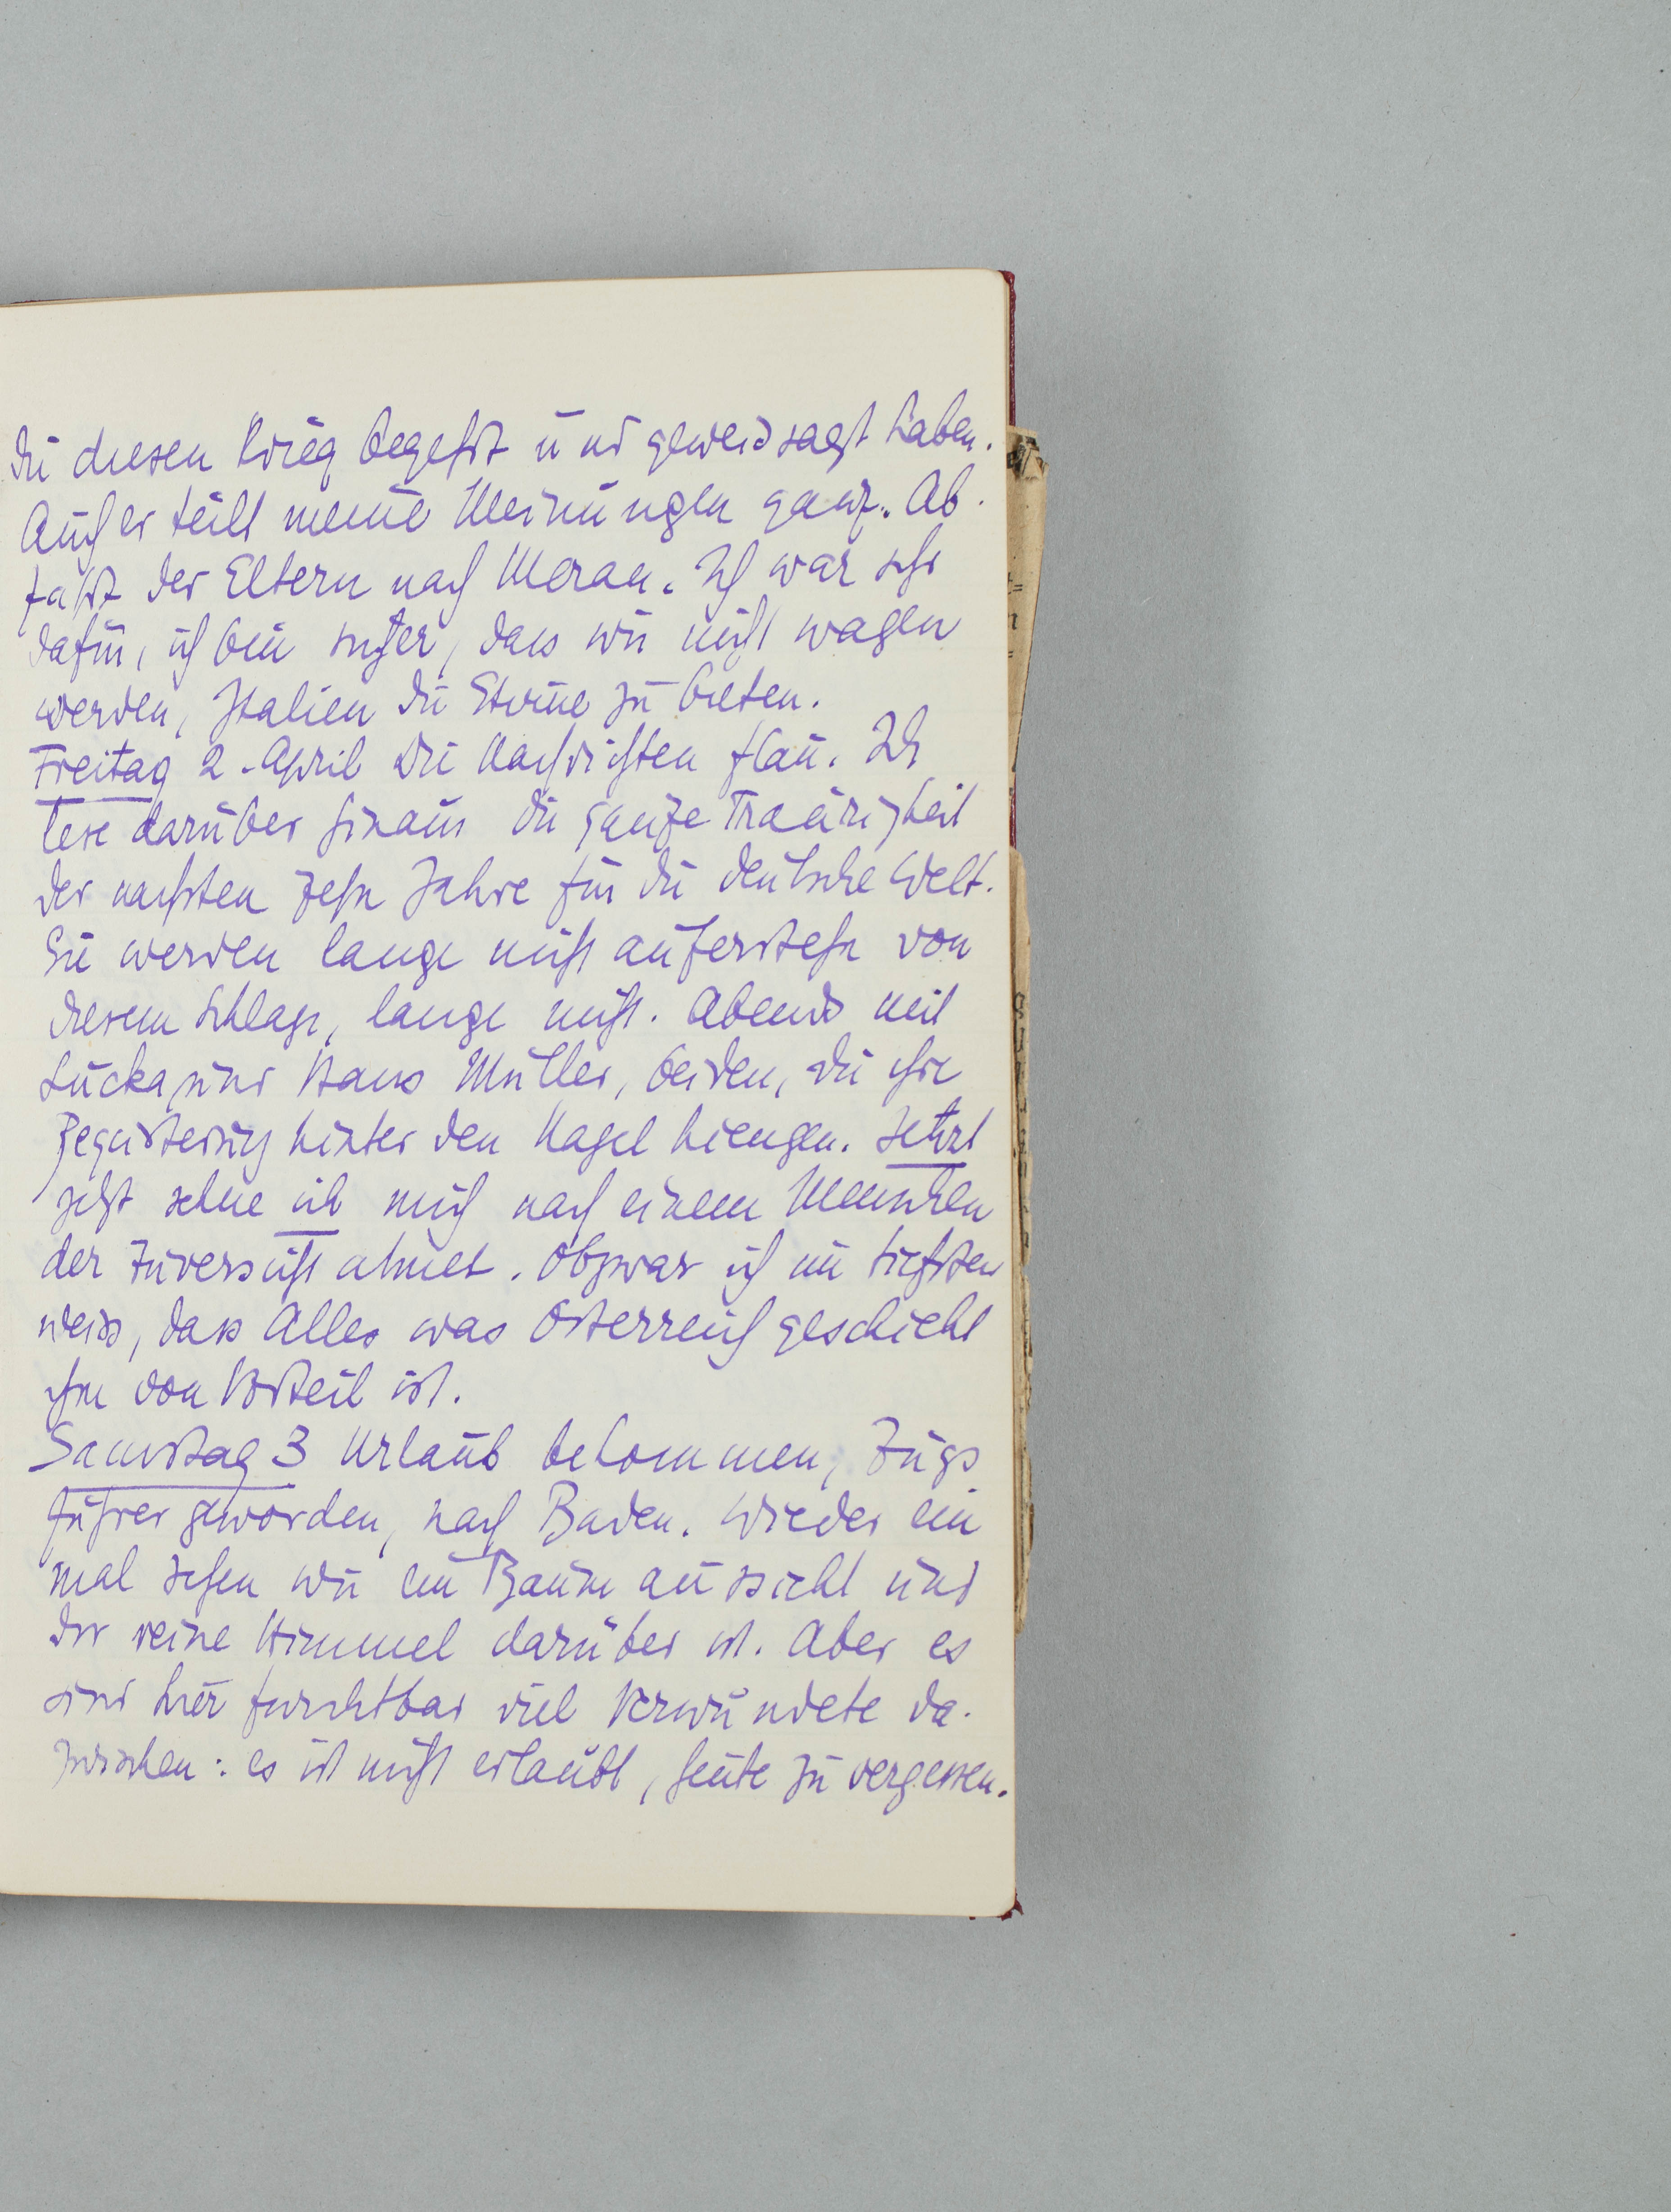 die diesen Krieg begehrt und geweissagt haben.
Auch er teilt meine Meinungen ganz. Ab-
fahrt der Eltern nach Meran. Ich war sehr
dafür, ich bin sicher, dass wir nicht wagen
werden, Italien die Stirne zu bieten.
Freitag 2. April Die Nachrichten flau. Ich
lese darüber hinaus die ganze Traurigkeit
der nächsten zehn Jahre für die deutsche Welt.
Sie werden lange nicht auferstehn von
diesem Schlage, lange nicht. Abends mit
Lucka und Hans Müller, beiden, die ihre
Begeisterung hinter den Nagel hiengen. Jetzt
jetzt sehne ich mich nach einem Menschen
der Zuversicht atmet. Obzwar ich im tiefsten
weiss, dass Alles was Österreich geschieht
ihm von Vorteil ist.
Samstag 3 Urlaub bekommen, Zugs
führer geworden, nach Baden. Wieder ein
mal sehen wie ein Baum aussieht und
der reine Himmel darüber ist. Aber es
sind hier furchtbar viel Verwundete da-
zwischen: es ist nicht erlaubt, heute zu vergessen.